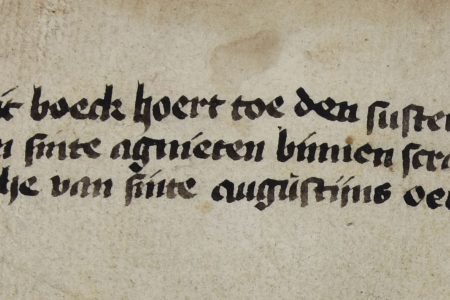 it boeck hoert toe den suste
sinte agnieten binnen
van sinte augustijns